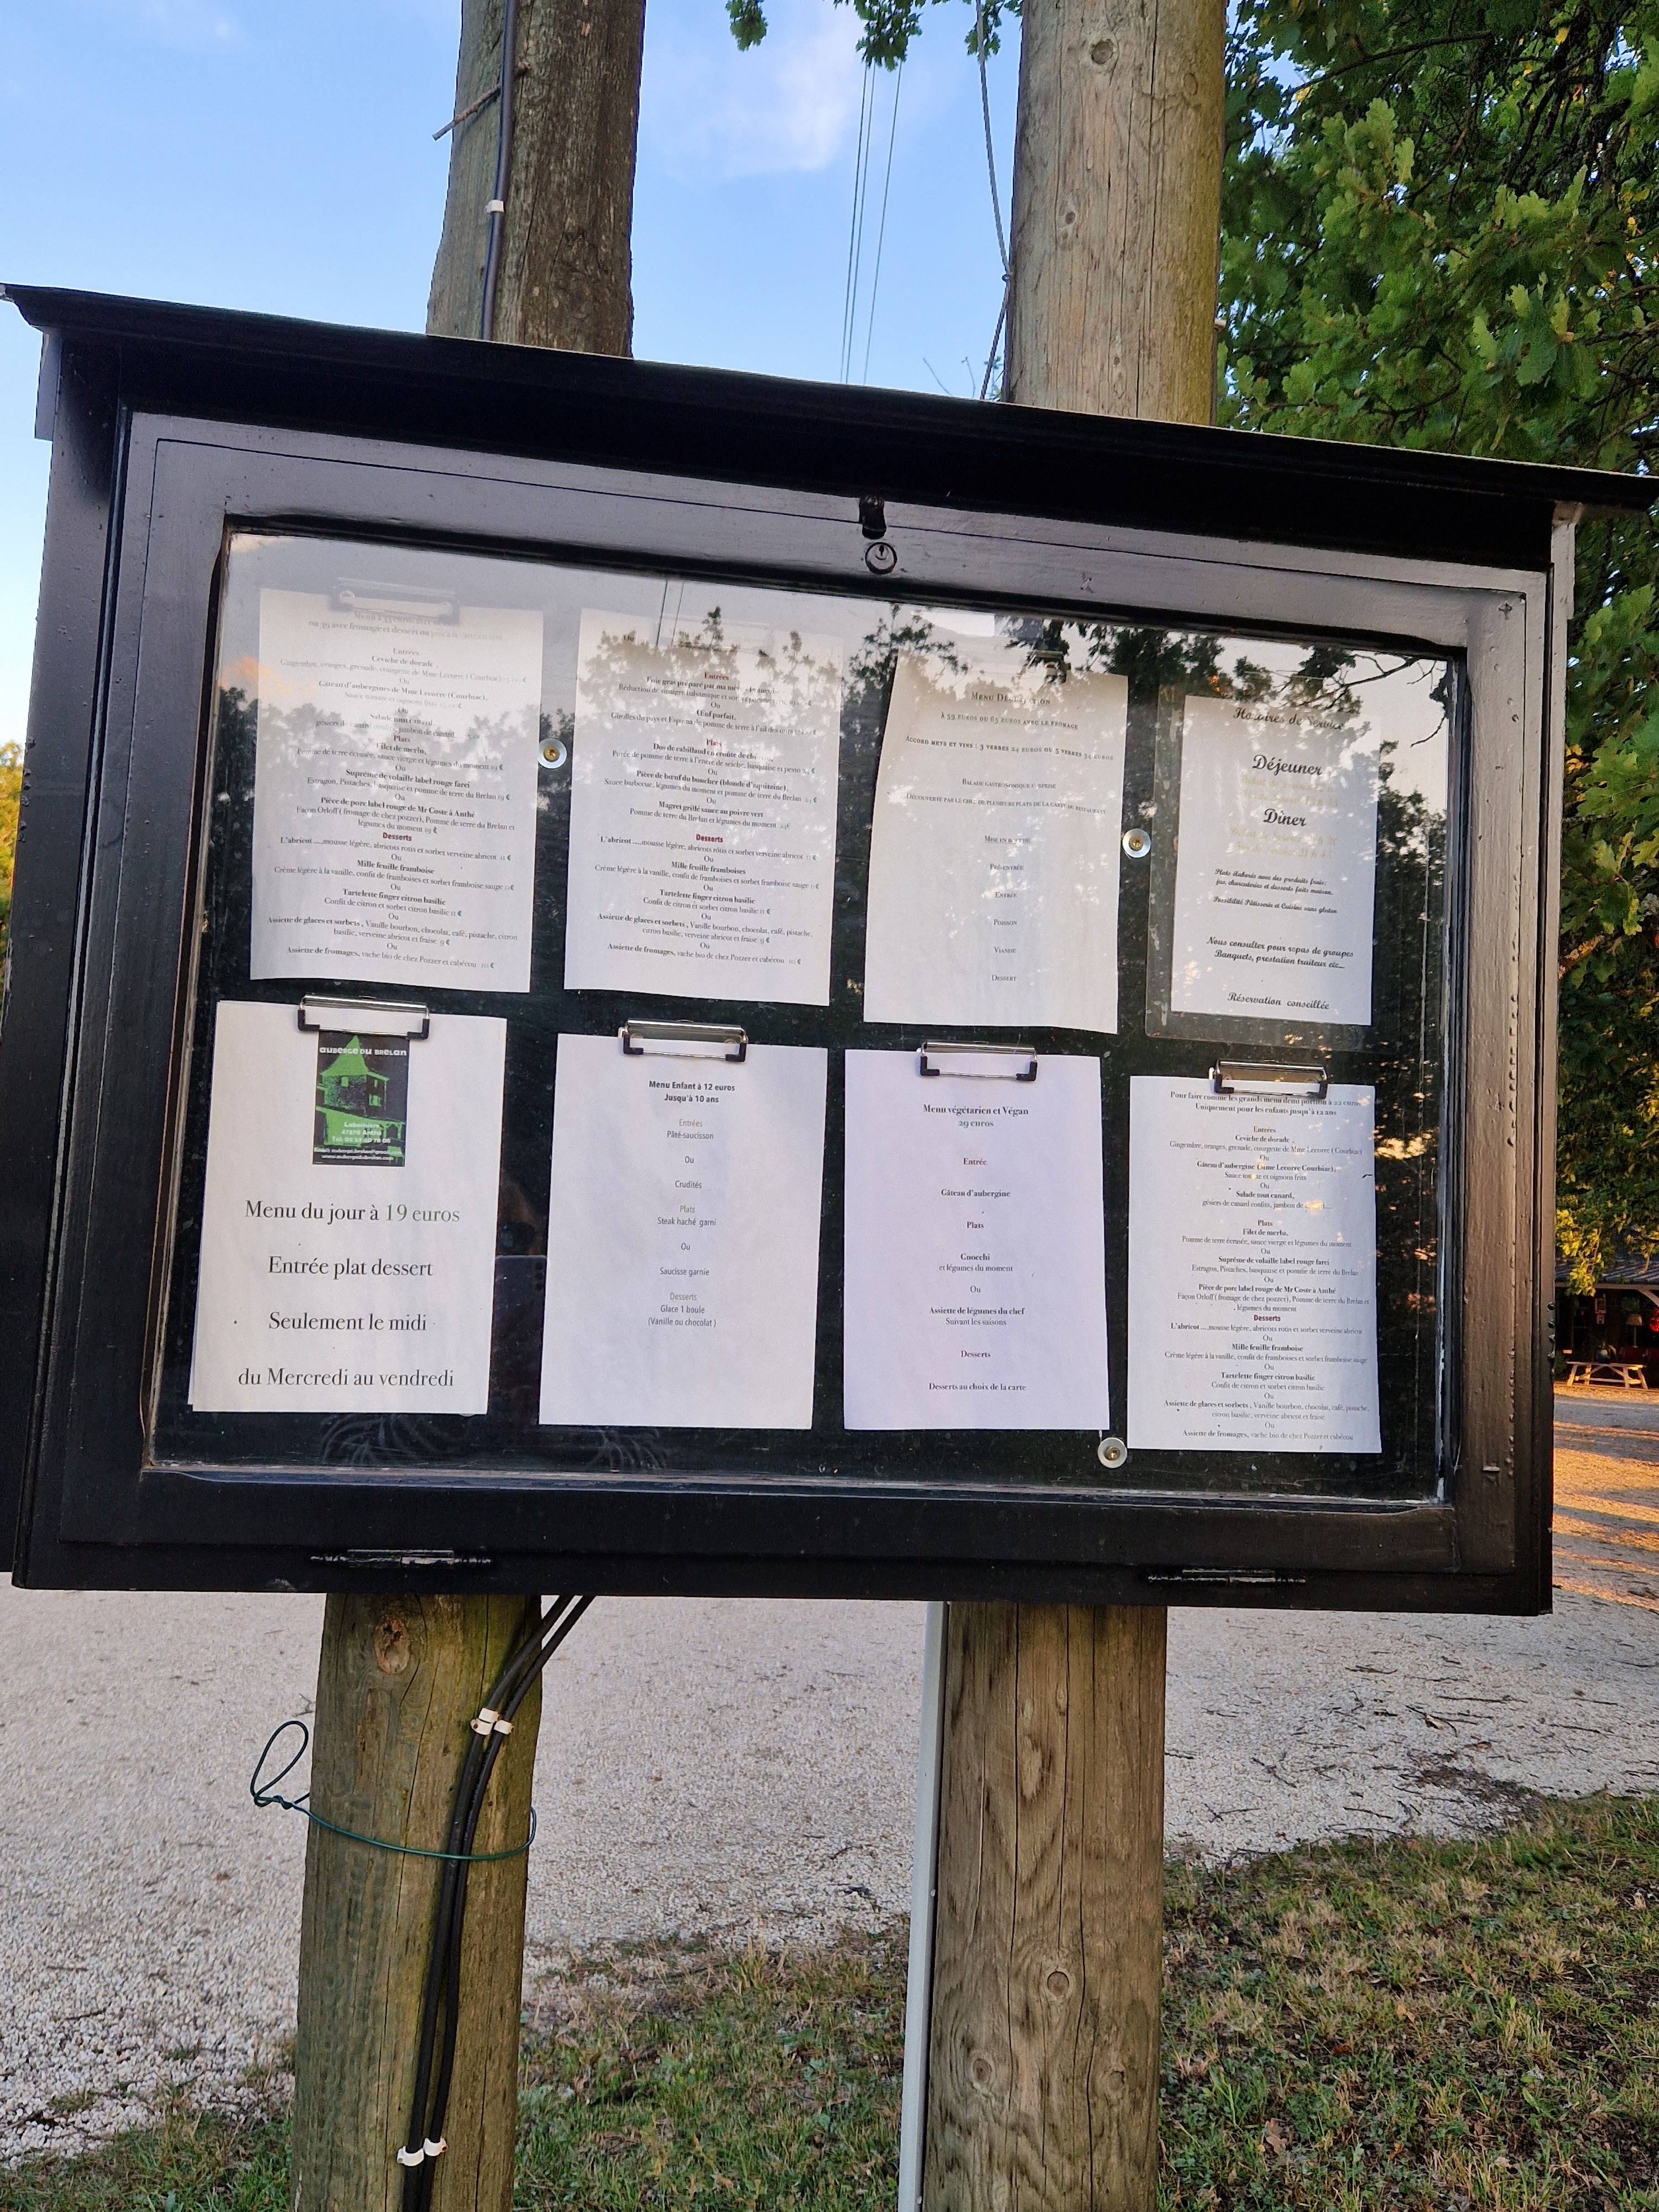 ou 39 avec fromage et dessert ou
Entrées
Ceviche de dorade ,
Gingembre, oranges, grenade, courgette de Mme Lecorre ( Courbiac)
Ou
Gâteau d'aubergines de Mme Lecorre (Courbiac),
Ou
Salade tout canard,
gésiers de canard confits, jambon de canard
Plats
Filet de merlu,
Pomme de terre écrasée, sauce vierge et légumes du moment 19 €
Ou
Suprême de volaille label rouge farci
Estragon, Pistaches, basquaise et pomme de terre du Brelan 19 €
Ou
Pièce de porc label rouge de Mr Coste à Anthé
Façon Orloff ( fromage de chez pozzer), Pomme de terre du Brelan et
légumes du moment 19 €
Desserts
L'abricot ....mousse légère, abricots rotis et sorbet verveine abricot 11 €
Ou
Mille feuille framboise
Crème légère à la vanille, confit de framboises et sorbet framboise sauge
Ou
Tartelette finger citron basilic
Confit de citron et sorbet citron basilic 11 €
Ou
Assiette de glaces et sorbets , Vanille bourbon, chocolat, café, pistache, citron
basilic, verveine abricot et fraise 9 €
Ou
Assiette de fromages, vache bio de chez Pozzer et cabécou 10 €
Entrées
Foie gras préparé par
Réduction de vinaigre balsamique et
Ou
Œuf parfait,
Girolles du pays et Espuma de pomme de terre à l'ail des ours
Plats
Dos de cabillaud en croûte de
Purée de pomme de terre à l'encre de seiche, basquaise et
Ou
Pièce de bœuf du boucher (blonde d'aquitaine),
Sauce barbecue, légumes du moment et pomme de terre du Brelan
Ou
Magret grillé sauce au poivre vert
Pomme de terre du Brelan et légumes du moment
Desserts
L'abricot ....mousse légère, abricots rôtis et sorbet verveine abricot
Ou
Mille feuille framboises
Crème légère à la vanille, confit de framboises et sorbet framboise sauge
Ou
Tartelette finger citron basilic
Confit de citron et sorbet citron basilic 11 €
Ou
Assiette de glaces et sorbets , Vanille bourbon, chocolat, café, pistache,
citron basilic, verveine abricot et fraise 9 €
Ou
Assiette de fromages, vache bio de chez Pozzer et cabécou 10 €
Menu Dégustation
à 59 euros ou 65 euros avec le fromage
Accord mets et vins : 3 verres 24 euros ou 5 verres 34 euros
Balade gastronomique surprise
Découverte par le chef de plusieurs plats de la carte du restaurant
Mise en bouche
Pré-entrée
Entrée
Poisson
Viande
Dessert
Horaires de Service
Déjeuner
Dîner
Plats élaborés avec des produits frais;
charcuteries et desserts faits maison.
Possibilité Pâtisserie et Cuisine sans gluten
Nous consulter pour repas de groupes
Banquets, prestation traiteur etc...
Réservation conseillée
AUBERGE DU BRELAN
47370 Anthé
www.aubergedubrelan.com
Menu du jour à 19 euros
Entrée plat dessert
Seulement le midi
du Mercredi au vendredi
Menu Enfant à 12 euros
Jusqu'à 10 ans
Entrées
Pâté-saucisson
Ou
Crudités
Plats
Steak haché garni
Ou
Saucisse garnie
Desserts
Glace 1 boule
(Vanille ou chocolat )
Menu végétarien et Végan
29 euros
Entrée
Gâteau d'aubergine
Plats
Gnocchi
et légumes du moment
Ou
Assiette de légumes du chef
Suivant les saisons
Desserts
Desserts au choix de la carte
Pour faire comme les grands menu demi portion à 22 euros
Uniquement pour les enfants jusqu'à 12 ans
Entrées
Ceviche de dorade ,
Gingembre, oranges, grenade, courgette de Mme Lecorre ( Courbiac)
Ou
Gâteau d'aubergine (Mme Lecorre Courbiac),
Sauce tomate et oignons frits
Ou
Salade tout canard,
gésiers de canard confits, jambon de
Plats
Filet de merlu,
Pomme de terre écrasée, sauce vierge et légumes du moment
Ou
Suprême de volaille label rouge farci
Estragon, Pistaches, basquaise et pomme de terre du Brelan
Ou
Pièce de porc label rouge de Mr Coste à Anthé
Façon Orloff ( fromage de chez pozzer), Pomme de terre du Brelan et
légumes du moment
Desserts
L'abricot ....mousse légère, abricots rotis et sorbet verveine abricot
Ou
Mille feuille framboise
Crème légère à la vanille, confit de framboises et sorbet framboise sauge
Ou
Tartelette finger citron basilic
Confit de citron et sorbet citron basilic
Ou
Assiette de glaces et sorbets , Vanille bourbon, chocolat, café, pistache,
citron basilic, verveine abricot et fraise
Ou
Assiette de fromages, vache bio de chez Pozzer et cabécou